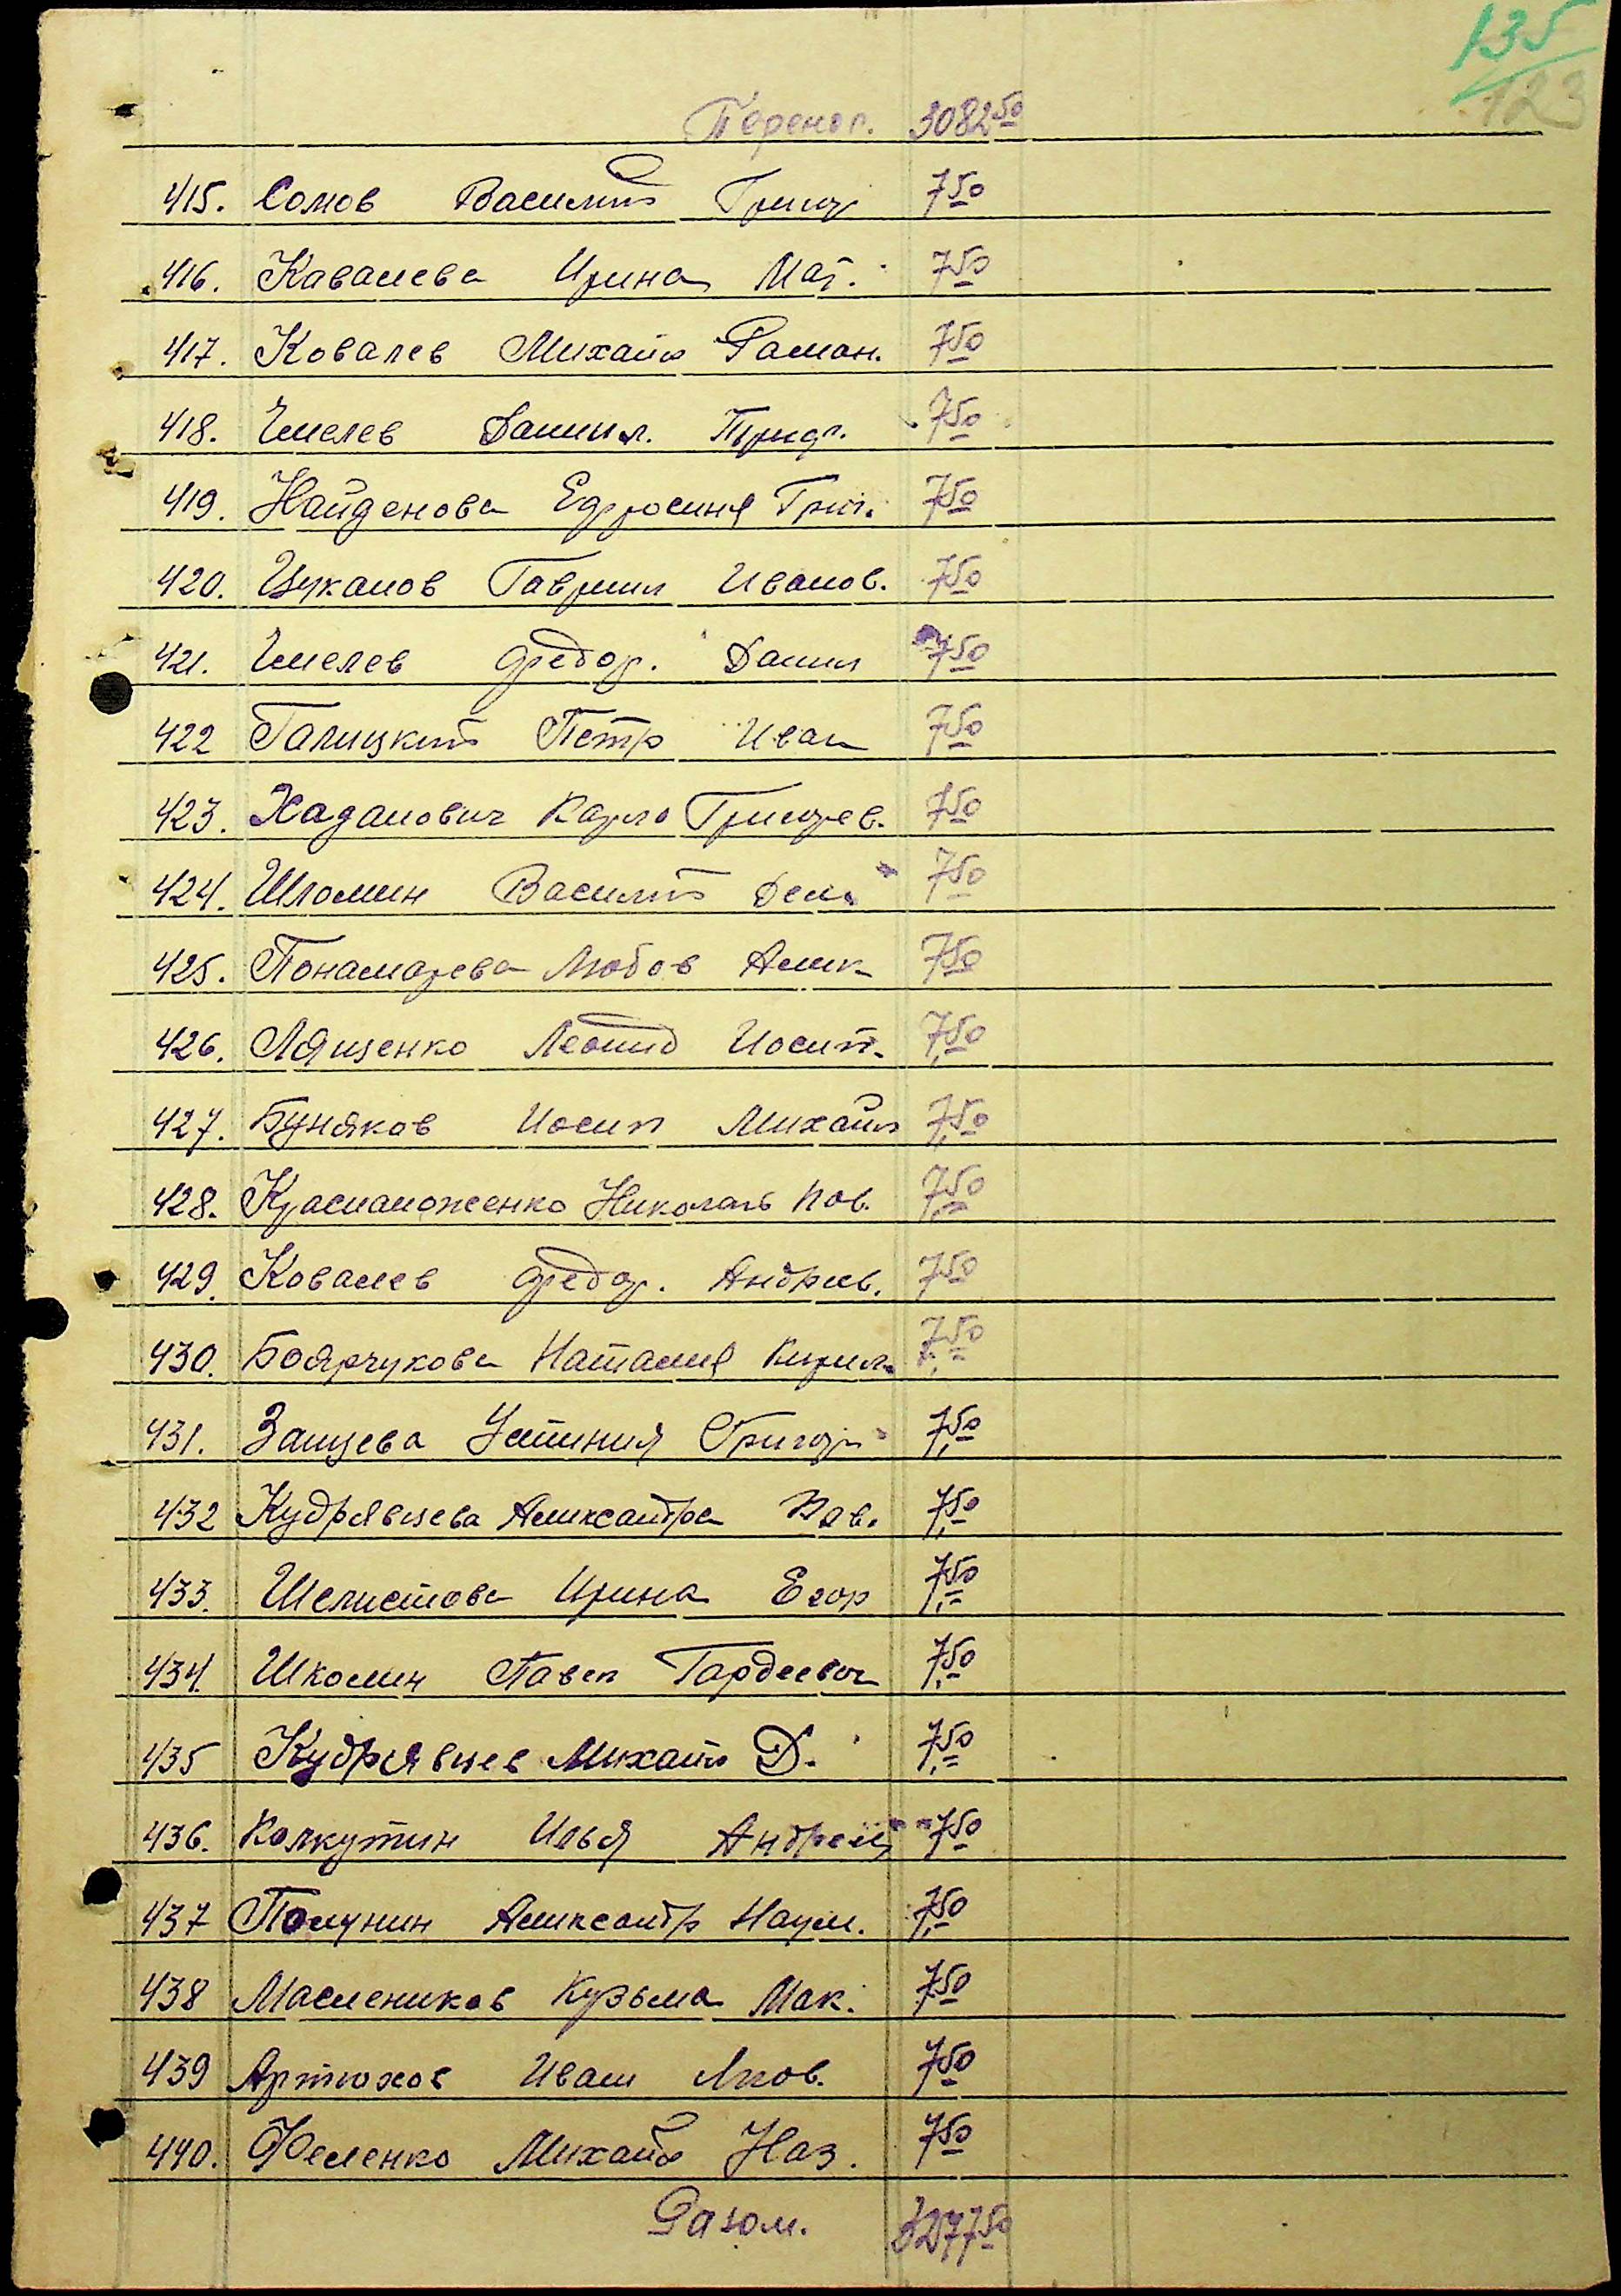 135
123
Перенос. 3082 50
415. Сомов Василий Григор 7 50
416. Кавалева Ирина Мат. 7 50
417. Ковалев Михайл Раман. 7 50
418. Чмелев Даниил. 7 50
419. Найденова Ефросиня Григ. 7 50
420. Цуканов Гавриил Иванов. 7 50
421. Чмелев Федор. Данил 7 50
422 Галицкий Петр Иван 7 50
423. Хаданович Карло Григорев. 7 50
424. Шломин Василий Дем. 7 50
425. Понамарева Любов Алек. 7 50
426. Лященко Леонид Иосип. 7,50
427. Буняков Иосип Михайл 7,50
428. Красналоженко Николай Пав. 7,50
429. Ковалев Федор. Андреев. 7 50
430. Боярчукова Наталия Кирил. 7,50
431. Зайцева Устиния Григор 7,50
432 Кудрявцева Александра Пав. 7,50
433. Шелистова Ирина Егор 7,50
434. Шкомин Павел Гордеевич 7,50
435 Кудрявцев Михайл Д. 7,50
436. Колкутин Илья Андреев 7 50
437 Полунин Александр Наум. 7,50
438 Маслеников Кузьма Мак. 7 50
439 Артюхов Иван Яков. 7 50
440. Феленко Михайл Наз. 7 50
Разом. 3277 50